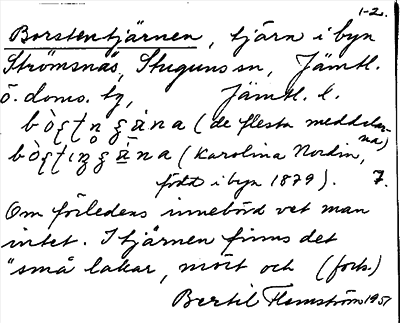 1-2.
Borstentjärnen, tjärn i byn
Strömsnäs, Stuguns sn, Jämtl.
ö. doms. tg, Jämtl. l.
(de flesta meddelarna)
(Karolina Nordin,
född i byn 1879). 7.
Om förledens innebörd vet man
intet. I tjärnen finns det
"små lakar, mört och (forts.)
Bertil Flemström 1951